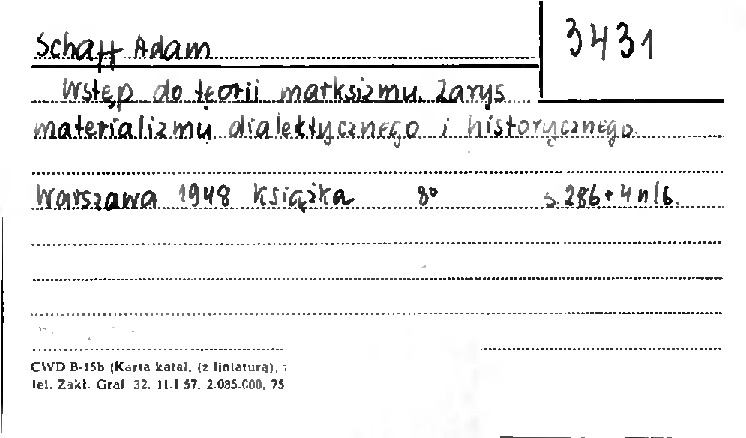 3431
Schaff Adam
Wstęp do teorii marksizmu. Zarys
materializmu dialektycznego i historycznego.
Warszawa 1948 Książka 8° s. 286+4 nlb.
CWD B-15b (Karta katal. (z liniaturą),
tel. Zakł. Graf 32. 11.I 57. 2.085.000. 75